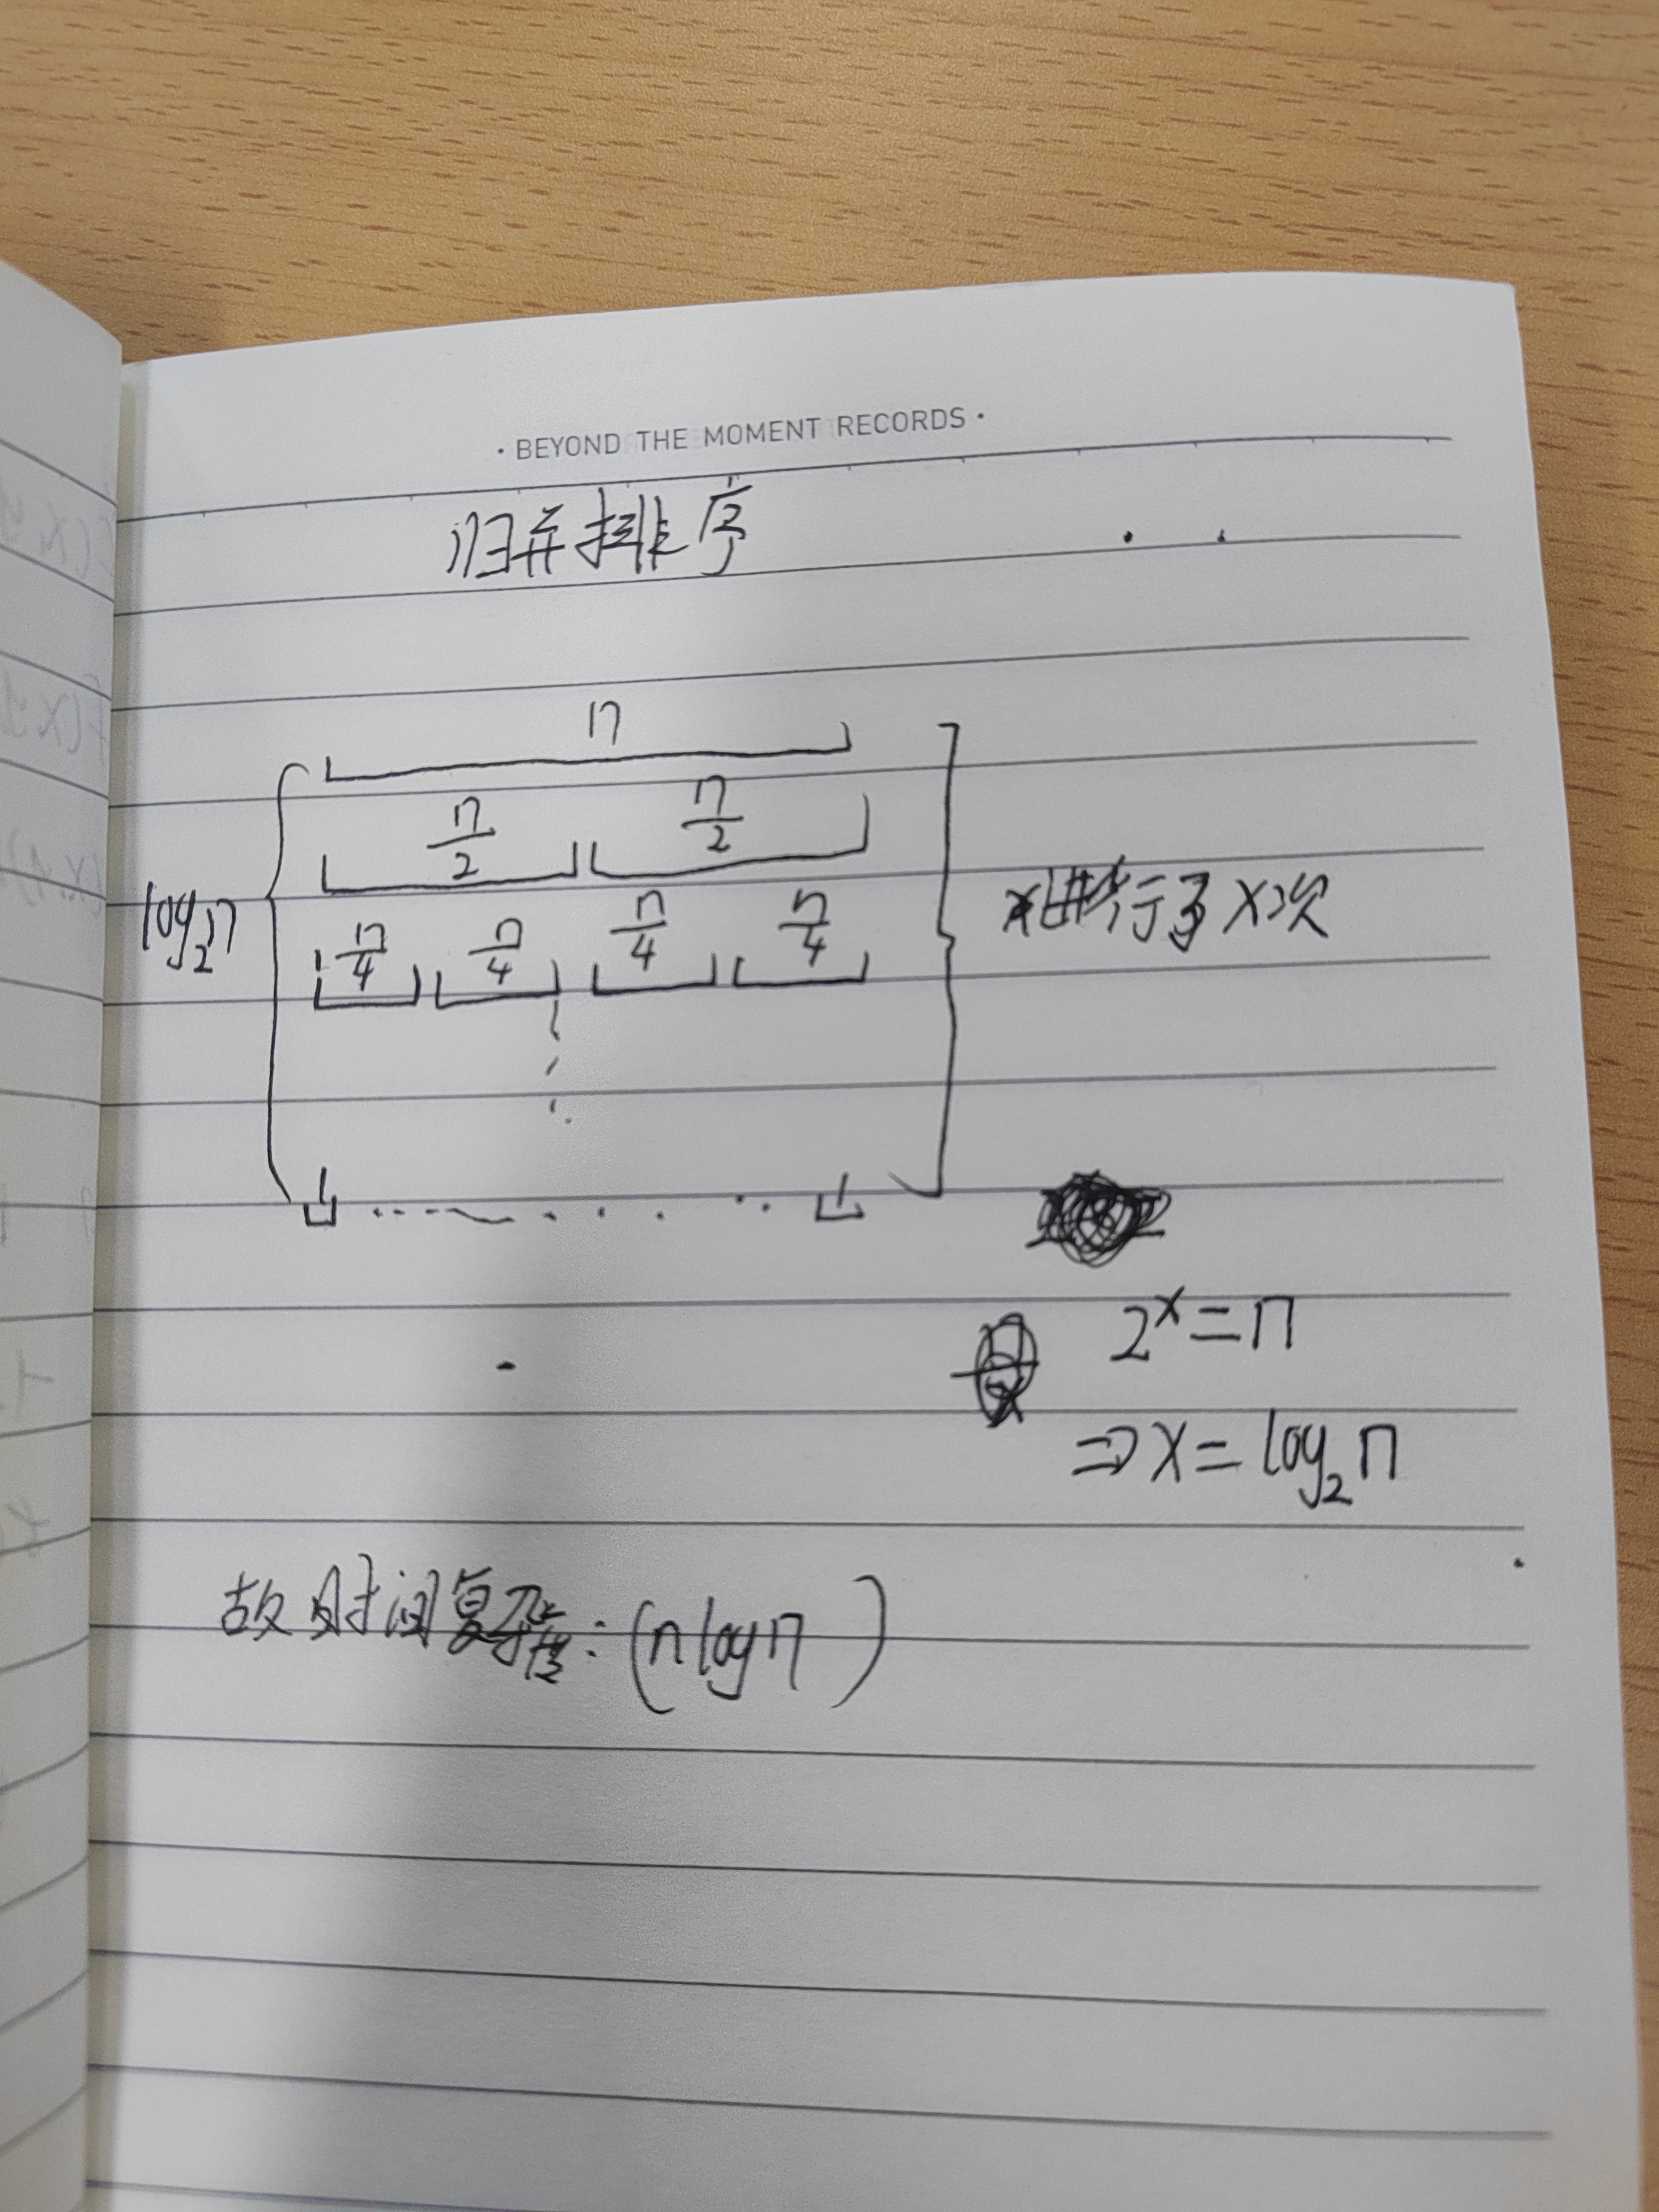 · BEYOND THE MOMENT RECORDS ·
归并排序
n
n/2 n/2
log₂n
n/4 n/4 n/4 n/4
进行了x次
1 1
2^x=n
⇒x=log₂n
故时间复杂度:(nlogn)